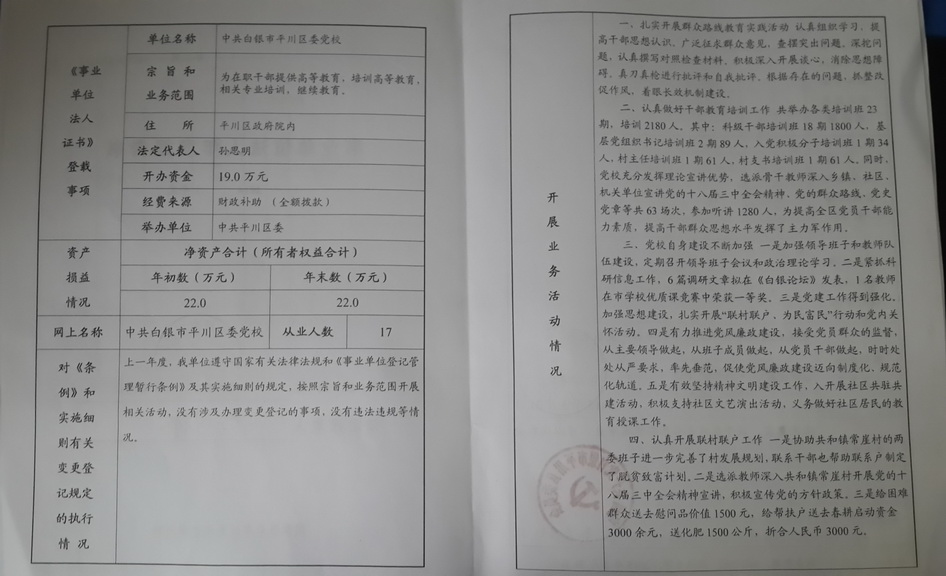 《事业
单位
法人
证书》
登载
事项
单位名称 中共白银市平川区委党校
宗旨和
业务范围
为在职干部提供高等教育，培训高等教育，
相关专业培训，继续教育。
住 所 平川区政府院内
法定代表人 孙思明
开办资金 19.0 万元
经费来源 财政补助（全额拨款）
举办单位 中共平川区委
资产
损益
情况
净资产合计（所有者权益合计）
年初数（万元） 年末数（万元）
22.0 22.0
网上名称 中共白银市平川区委党校 从业人数 17
对《条
例》和
实施细
则有关
变更登
记规定
的执行
情 况
上一年度，我单位遵守国家有关法律法规和《事业单位登记管
理暂行条例》及其实施细则的规定，按照宗旨和业务范围开展
相关活动，没有涉及办理变更登记的事项，没有违法违规等情
况。
开
展
业
务
活
动
情
况
一、扎实开展群众路线教育实践活动 认真组织学习，提
高干部思想认识。广泛征求群众意见，查摆突出问题，深挖问
题，认真撰写对照检查材料。积极深入开展谈心，消除思想障
碍。真刀真枪进行批评和自我批评。根据存在的问题，抓整改
促作风，着眼长效机制建设。
二、认真做好干部教育培训工作 共举办各类培训班 23
期，培训 2180 人。其中：科级干部培训班 18 期 1800 人，基
层党组织书记培训班 2 期 89 人，入党积极分子培训班 1 期 34
人，村主任培训班 1 期 61 人，村支书培训班 1 期 61 人。同时，
党校充分发挥理论宣讲优势，选派骨干教师深入乡镇、社区、
机关单位宣讲党的十八届三中全会精神、党的群众路线、党史
党章等共 63 场次，参加听讲 1280 人，为提高全区党员干部能
力素质，提高干部群众思想水平发挥了主力军作用。
三、党校自身建设不断加强 一是加强领导班子和教师队
伍建设，定期召开领导班子会议和政治理论学习。二是紧抓科
研信息工作，6 篇调研文章拟在《白银论坛》发表，1 名教师
在市学校优质课竞赛中荣获一等奖。三是党建工作得到强化。
加强思想建设，扎实开展“联村联户、为民富民”行动和党内关
怀活动。四是有力推进党风廉政建设，接受党员群众的监督，
从主要领导做起，从班子成员做起，从党员干部做起，时时处
处从严要求，率先垂范，促使党风廉政建设迈向制度化、规范
化轨道。五是有效坚持精神文明建设工作，入开展社区共驻共
建活动，积极支持社区文艺演出活动，义务做好社区居民的教
育授课工作。
四、认真开展联村联户工作 一是协助共和镇常崖村的两
委班子进一步完善了村发展规划，联系干部也帮助联系户制定
了脱贫致富计划。二是选派教师深入共和镇常崖村开展党的十
八届三中全会精神宣讲，积极宣传党的方针政策。三是给困难
群众送去慰问品价值 1500 元，给帮扶户送去春耕启动资金
3000 余元，送化肥 1500 公斤，折合人民币 3000 元。